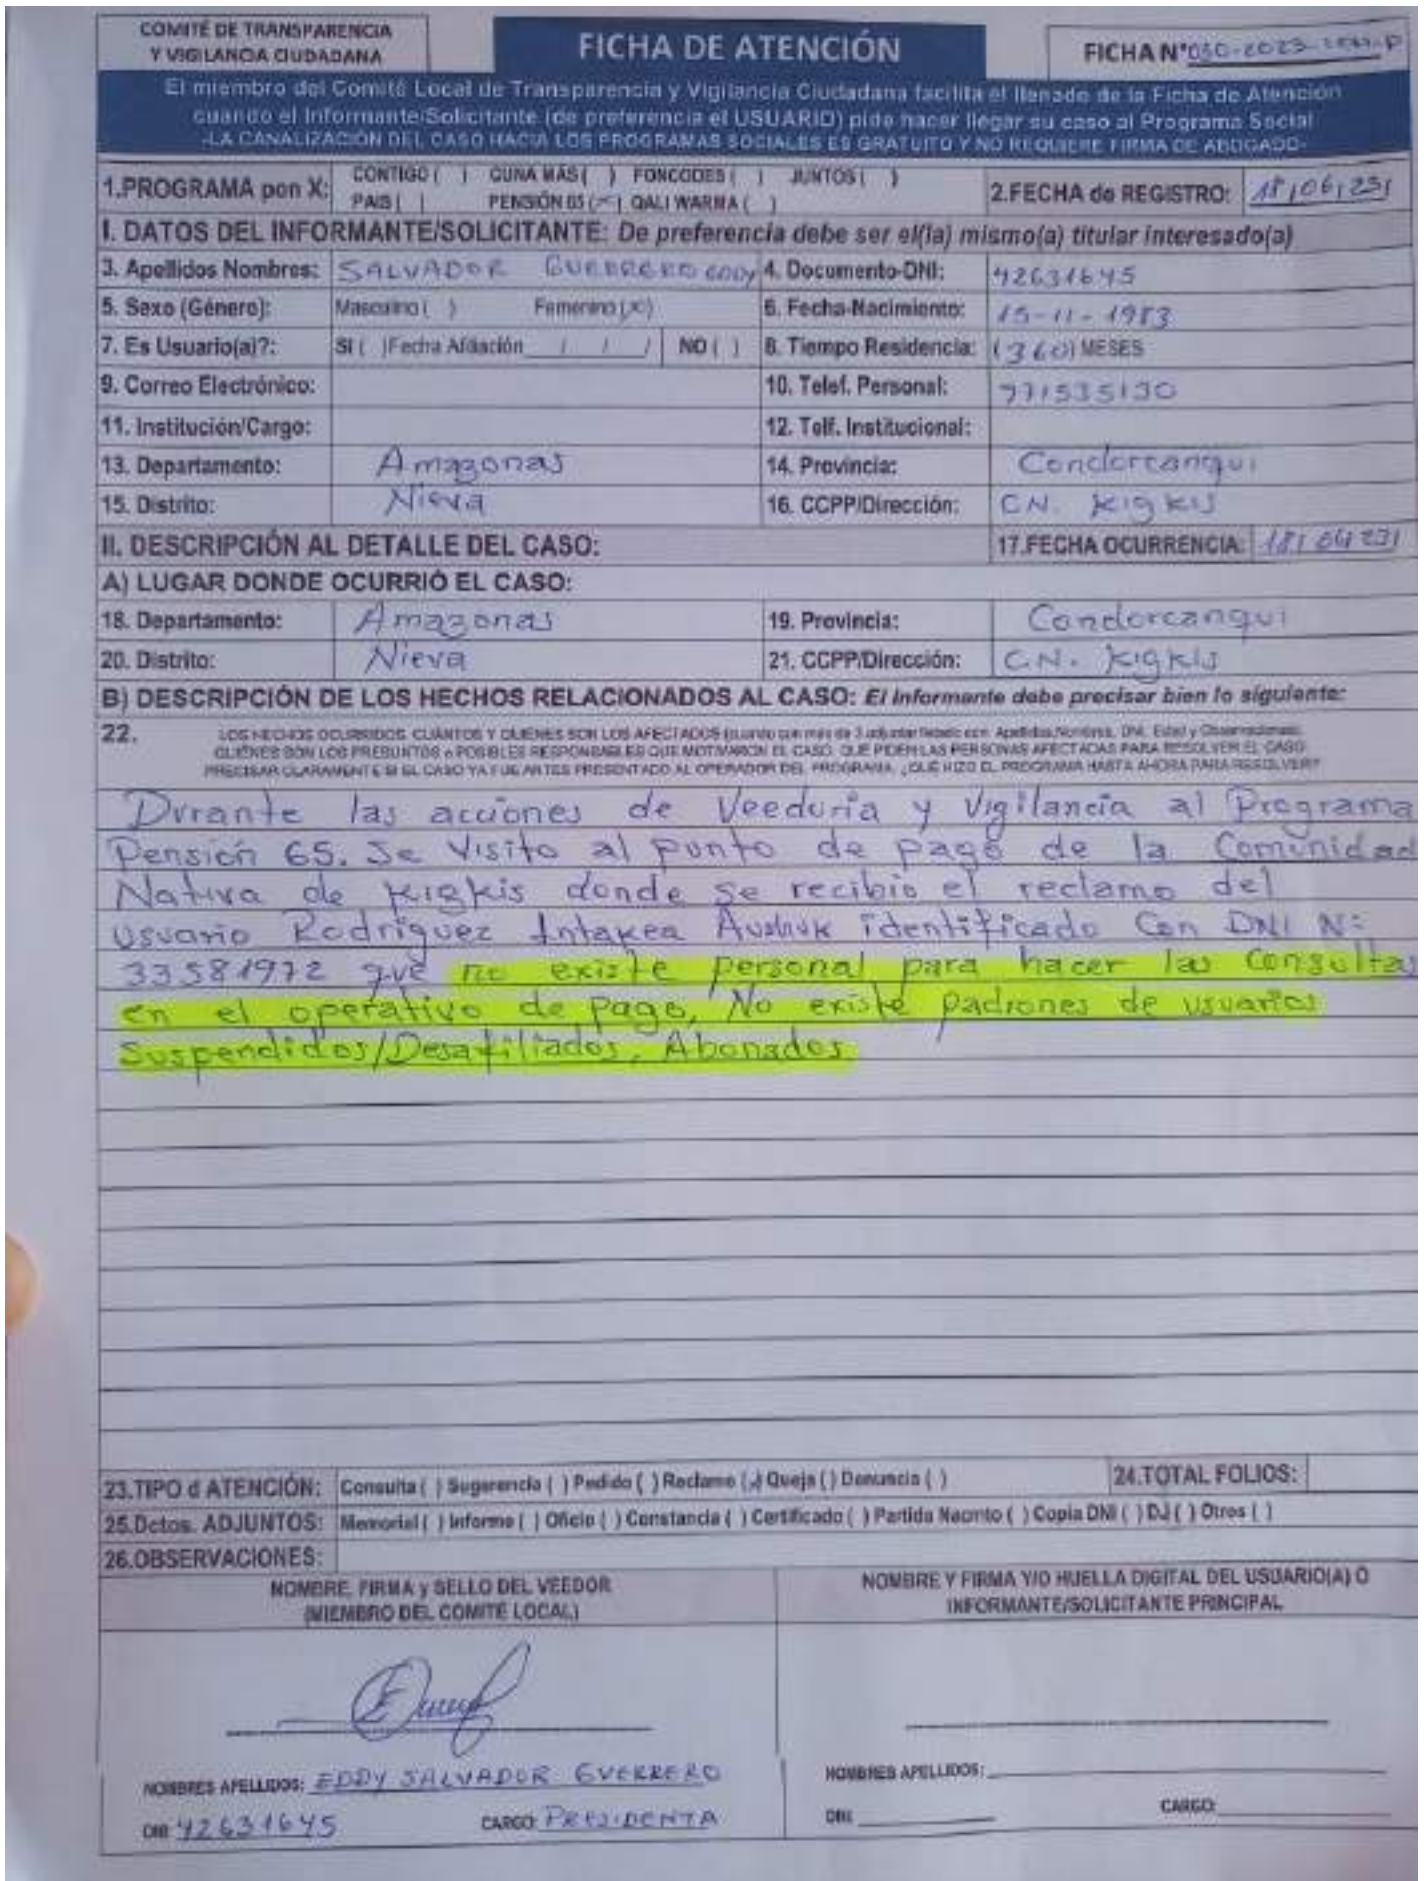 COMITÉ DE TRANSPARENCIA
Y VIGILANCIA CIUDADANA
FICHA DE ATENCIÓN
FICHA N° 030-2023
El miembro del Comité Local de Transparencia y Vigilancia Ciudadana facilita el llenado de la Ficha de Atención
cuando el Informante/Solicitante (de preferencia el USUARIO) pide hacer llegar su caso al Programa Social
-LA CANALIZACIÓN DEL CASO HACIA LOS PROGRAMAS SOCIALES ES GRATUITO Y NO REQUIERE FIRMA DE ABOGADO-
1.PROGRAMA pon X: CONTIGO ( ) CUNA MÁS ( ) FONCODES ( ) JUNTOS ( )
PAIS ( ) PENSIÓN 65 (X) QALI WARMA ( )
2.FECHA de REGISTRO: 18/06/23/
I. DATOS DEL INFORMANTE/SOLICITANTE: De preferencia debe ser el(la) mismo(a) titular interesado(a)
3. Apellidos Nombres: SALVADOR GUERRERO EDDY 4. Documento-DNI: 42631645
5. Sexo (Género): Masculino ( ) Femenino (X) 6. Fecha-Nacimiento: 15-11-1983
7. Es Usuario(a)?: SI ( ) Fecha Afiliación / / / NO ( ) 8. Tiempo Residencia: (360) MESES
9. Correo Electrónico: 10. Telef. Personal: 971535130
11. Institución/Cargo: 12. Telf. Institucional:
13. Departamento: Amazonas 14. Provincia: Condorcanqui
15. Distrito: Nieva 16. CCPP/Dirección: CN. Kigkis
II. DESCRIPCIÓN AL DETALLE DEL CASO: 17.FECHA OCURRENCIA: 18/ 23/
A) LUGAR DONDE OCURRIÓ EL CASO:
18. Departamento: Amazonas 19. Provincia: Condorcanqui
20. Distrito: Nieva 21. CCPP/Dirección: C.N. Kigkis
B) DESCRIPCIÓN DE LOS HECHOS RELACIONADOS AL CASO: El Informante debe precisar bien lo siguiente:
22. LOS HECHOS OCURRIDOS, CUÁNTOS Y QUIÉNES SON LOS AFECTADOS (cuando son más de 3 adjuntar listado con: Apellidos, Nombres, DNI, Edad y Observaciones).
QUIÉNES SON LOS PRESUNTOS o POSIBLES RESPONSABLES QUE MOTIVARON EL CASO. QUÉ PIDEN LAS PERSONAS AFECTADAS PARA RESOLVER EL CASO.
PRECISAR CLARAMENTE SI EL CASO YA FUE ANTES PRESENTADO AL OPERADOR DEL PROGRAMA. ¿QUÉ HIZO EL PROGRAMA HASTA AHORA PARA RESOLVER?
Durante las acciones de Veeduria y Vigilancia al Programa
Pensión 65. Se Visito al punto de pago de la Comunidad
Nativa de Kigkis donde se recibio el reclamo del
usuario Rodriguez Intakea identificado Con DNI N:
33581972 que no existe personal para hacer las Consultas
en el operativo de pago, No existe padrones de usuarios
Suspendidos/Desafiliados, Abonados
23.TIPO d ATENCIÓN: Consulta ( ) Sugerencia ( ) Pedido ( ) Reclamo (x) Queja ( ) Denuncia ( ) 24.TOTAL FOLIOS:
25.Dctos. ADJUNTOS: Memorial ( ) Informe ( ) Oficio ( ) Constancia ( ) Certificado ( ) Partida Nacmto ( ) Copia DNI ( ) DJ ( ) Otros ( )
26.OBSERVACIONES:
NOMBRE, FIRMA y SELLO DEL VEEDOR
(MIEMBRO DEL COMITÉ LOCAL)
NOMBRE Y FIRMA Y/O HUELLA DIGITAL DEL USUARIO(A) O
INFORMANTE/SOLICITANTE PRINCIPAL
NOMBRES APELLIDOS: EDDY SALVADOR GUERRERO
DNI: 42631645 CARGO: PRESIDENTA
NOMBRES APELLIDOS:
DNI: CARGO: